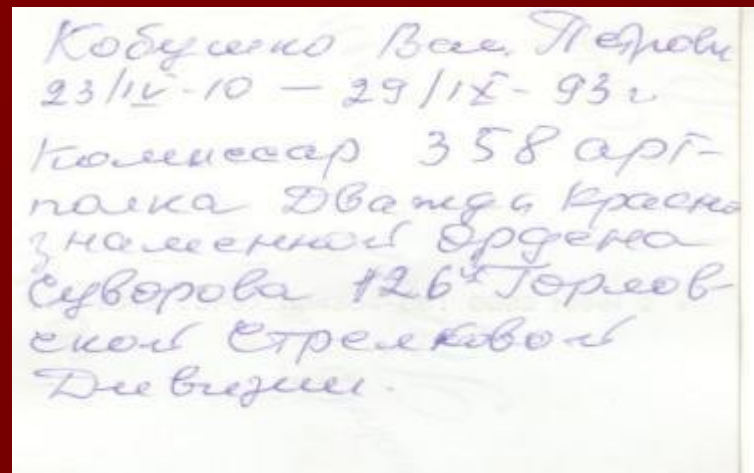 Кобушко Вал. Петрови
23/IV-10 — 29/IX-93 г
Комиссар 358 арт-
полка Дважды Красно
знаменной ордена
Суворова 126й Горлов-
ской Стрелковой
Дивизии.